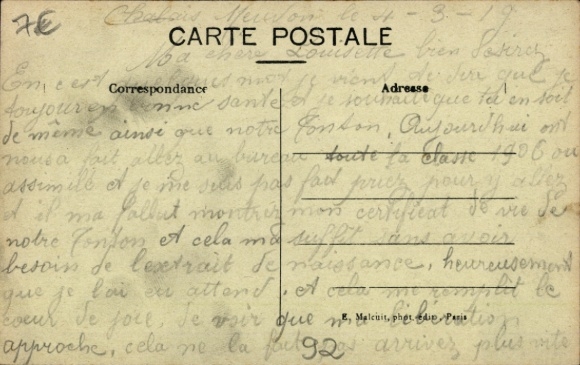 7€
Chalais Meudon le 4-3-19
CARTE POSTALE
Ma chère Louisette bien désirée
Correspondance
Adresse
En c'est quelques mot je vient de dire que je
toujour en bonne santé et je souhaite que ta en soit
de même ainsi que notre Tonton, Aujourd'hui ont
nous a fait allez au bureau toute la classe 1906 ou
assimilé et je me suis pas fait priez pour y allez
et il ma fallut montrez mon certificat de vie de
notre Tonton et cela ma suffit sans avoir
besoin de l'extrait de naissance, heureusement
que je l'ai en attend, et cela me remplit le
E. Malcuit, phot. édit., Paris
cœur de joie de voir que ma libération
approche, cela ne la fait pas arrivez plus vite
92